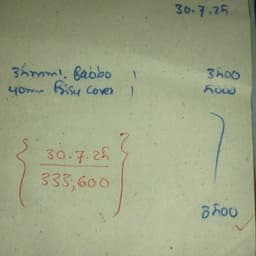 30.7.25
35mm. Babbo 1 3500
40mm Bisu cover 1 5000
30.7.25
333,600
3500